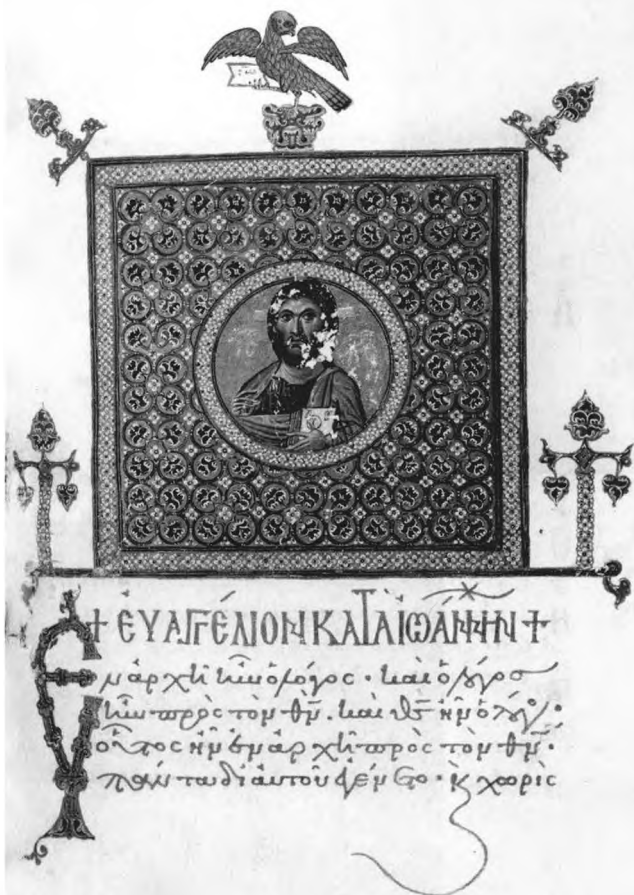 + ἘΥΑΓΓΈΛΙΟΝ ΚΑΤΑ ἸΩΆΝΝΗΝ +
Ἐν ἀρχῆ ἦν ὁ λόγος · καὶ ὁ λόγος
ἦν πρὸς τὸν θν̄ · καὶ θς̄ ἦν ὁ λόγος ·
οὗτος ἦν ἐν ἀρχῆ πρὸς τὸν θν̄ ·
πάντα δι αὐτοῦ ἐγένετο · κ χωρὶς